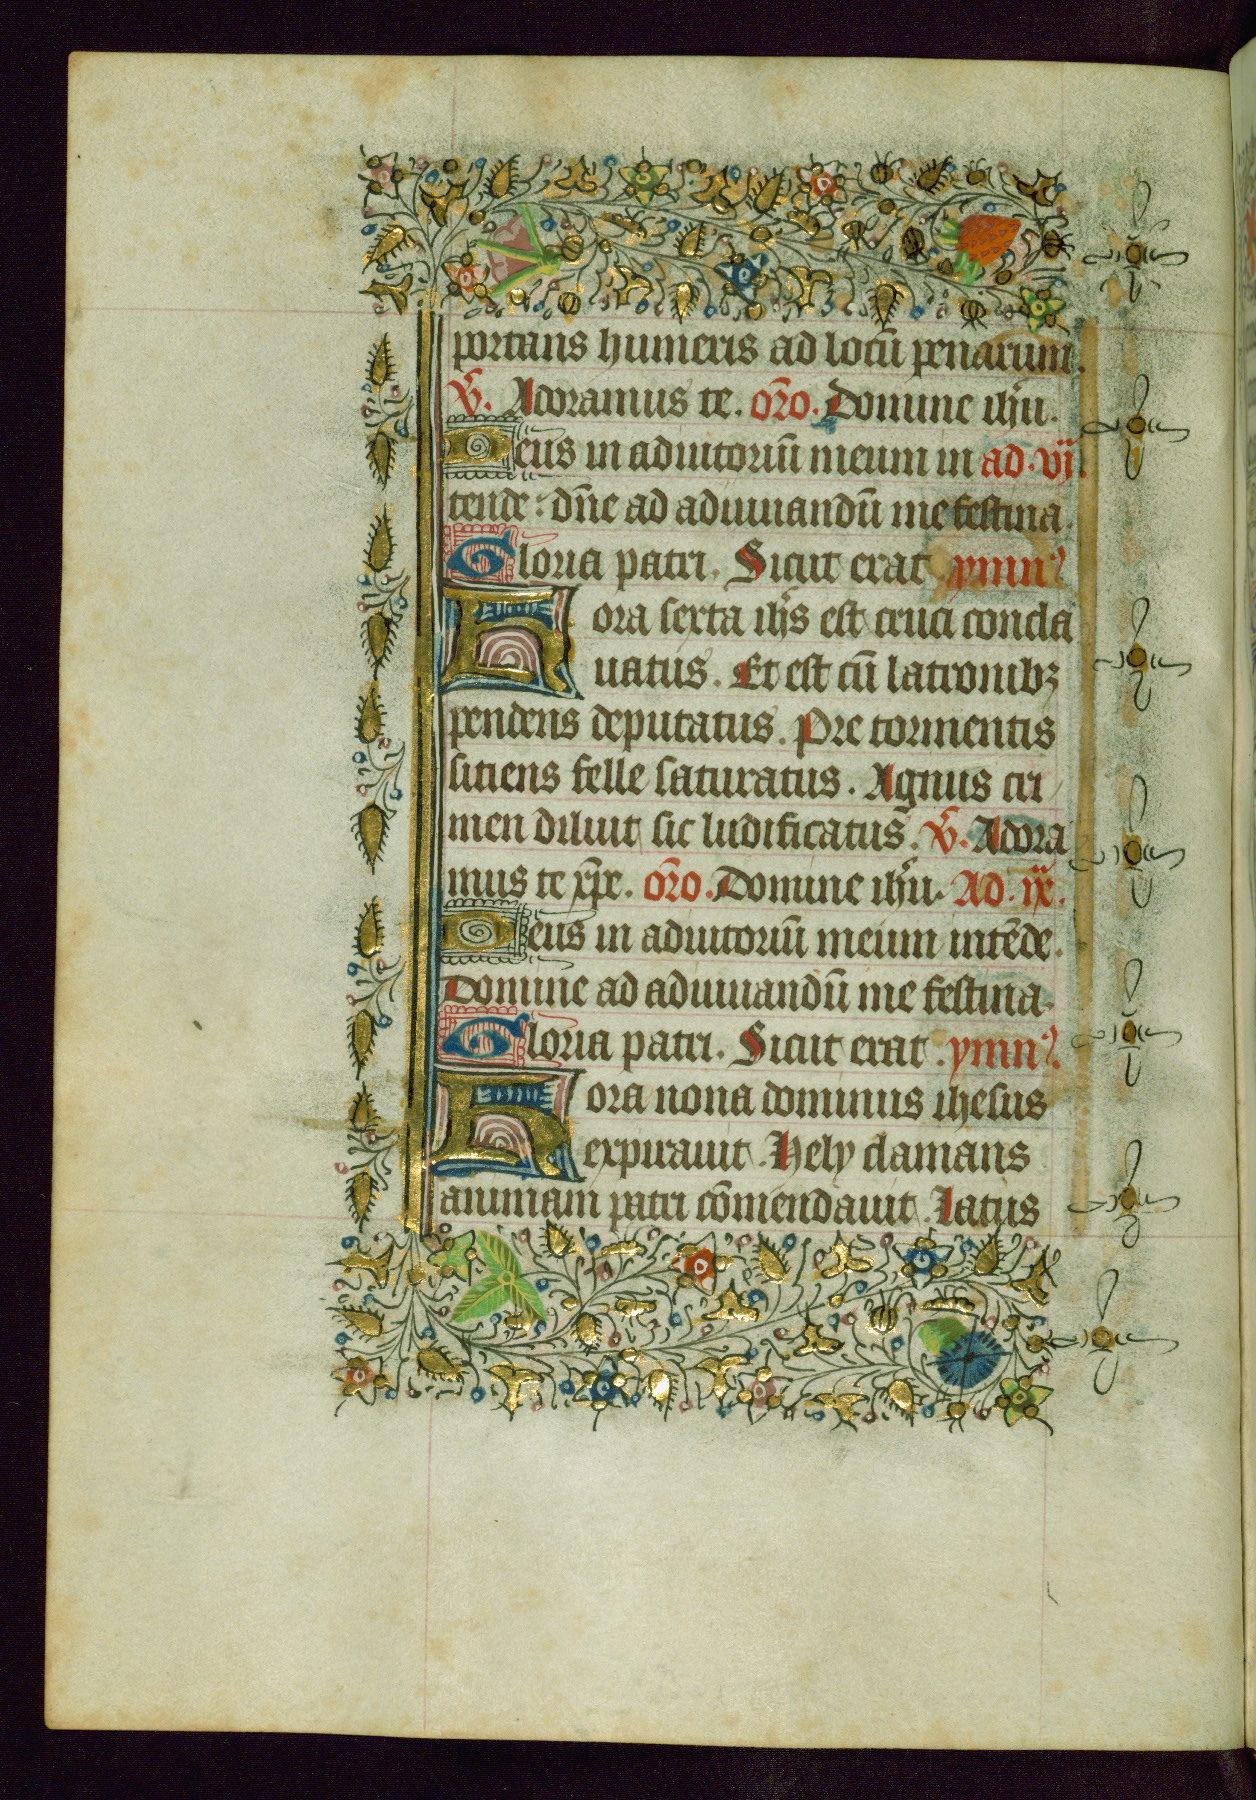 portans humeris ad locū penarum.
v̄. Adoramus te. or̄o. Domine ih̄u.
Deus in adiutoriū meum in ad. vi.
tende: dn̄e ad adiuuandū me festina.
Gloria patri. Sicut erat. ymnꝰ
Hora sexta ih̄s est cruci concla
uatus. Et est cū latronibꝫ
pendens deputatus. Pre tormentis
sitiens felle saturatus. Agnus cri
men diluit sic ludificatus. v̄. Adora
mus te xp̄e. or̄o. Domine ih̄u. Ad. ix.
Deus in adiutoriū meum intēde.
Domine ad adiuuandū me festina.
Gloria patri. Sicut erat. ymnꝰ.
Hora nona dominus ihesus
expirauit. Hely clamans
animam patri cōmendauit. Latus